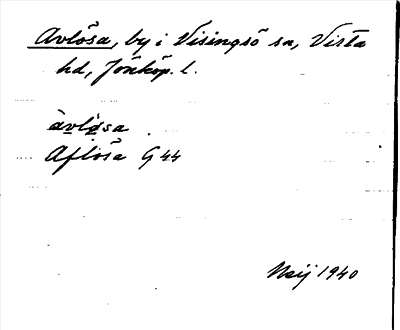 Avlösa, by i Visingsö sn, Vista
hd, Jönköp. l.
àvlø̀sa
Aflösa G 44
Neij 1940